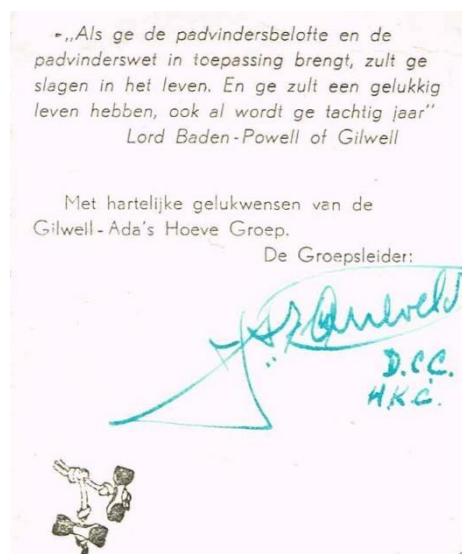 „Als ge de padvindersbelofte en de
padvinderswet in toepassing brengt, zult ge
slagen in het leven. En ge zult een gelukkig
leven hebben, ook al wordt ge tachtig jaar”
Lord Baden-Powell of Gilwell
Met hartelijke gelukwensen van de
Gilwell-Ada's Hoeve Groep.
De Groepsleider:
D.C.C.
H.K.C.